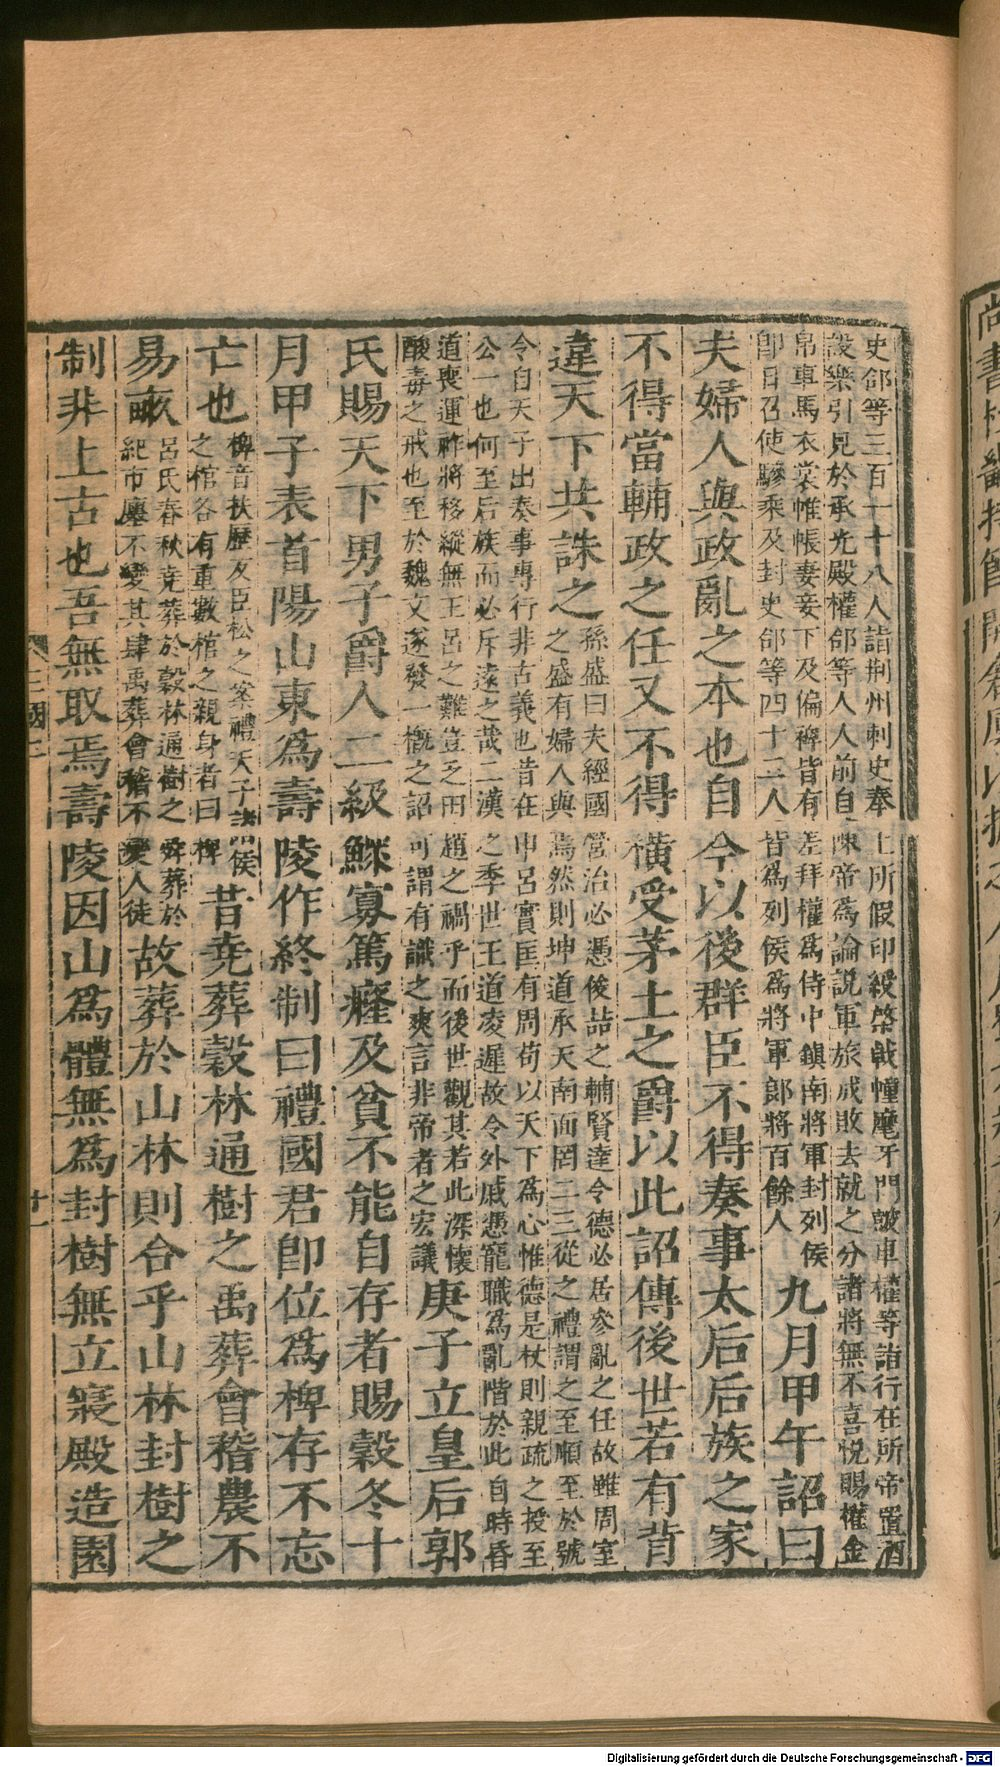 史郃等三百一十八人詣荆州刺史奉上所假印綬棨戟幢麾牙門鼓車權等詣行在所帝置酒
設樂引見於承光殿權郃等人人前自陳帝爲論說軍旅成敗去就之分諸將無不喜悅賜權金
帛車馬衣裘帷帳妻妾下及偏裨皆有差拜權爲侍中鎮南將軍封列侯
卽日召使驂乘及封史郃等四十二人皆爲列侯爲將軍郎將百餘人
九月甲午詔曰
夫婦人與政亂之本也自今以後群臣不得奏事太后后族之家
不得當輔政之任又不得橫受茅土之爵以此詔傳後世若有背
違天下共誅之
孫盛曰夫經國營治必憑俊喆之輔賢達令德必居參亂之任故雖周室
之盛有婦人與焉然則坤道承天南面罔二三從之禮謂之至順至於號
令自天子出奏事專行非古義也昔在申呂實匡有周苟以天下爲心惟德是杖則親疏之授至
公一也何至后族而必斥遠之哉二漢之季世王道凌遲故令外戚憑寵職爲亂階於此自時昏
道喪運祚將移縱無王呂之難豈乏田趙之禍乎而後世觀其若此深懷
酸毒之戒也至於魏文遂發一槪之詔可謂有識之爽言非帝者之宏議
庚子立皇后郭
氏賜天下男子爵人二級鰥寡篤癃及貧不能自存者賜穀冬十
月甲子表首陽山東爲壽陵作終制曰禮國君卽位爲椑存不忘
亡也
椑音扶歷反臣松之案禮天子諸侯
之棺各有重數棺之親身者曰椑
昔堯葬穀林通樹之禹葬會稽農不
易畝
呂氏春秋堯葬於穀林通樹之舜葬於
紀市廛不變其肆禹葬會稽不變人徒
故葬於山林則合乎山林封樹之
制非上古也吾無取焉壽陵因山爲體無爲封樹無立寢殿造園
三國二
廿一
Digitalisierung gefördert durch die Deutsche Forschungsgemeinschaft - DFG